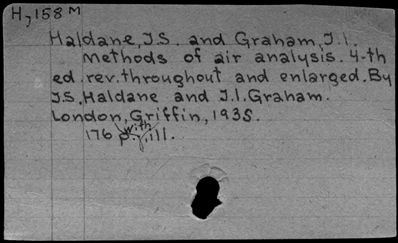 H,158 M
Haldane, J.S. and Graham, J.I.
Methods of air analysis. 4-th
ed. rev. throughout and enlarged. By
J.S. Haldane and J.I. Graham.
London, Griffin, 1935.
with
176 p., ill.